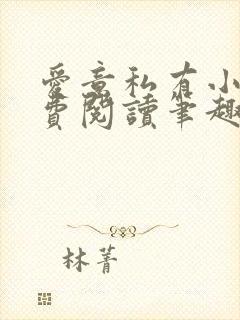 愛意私有小
費閱讀筆趣
林菁